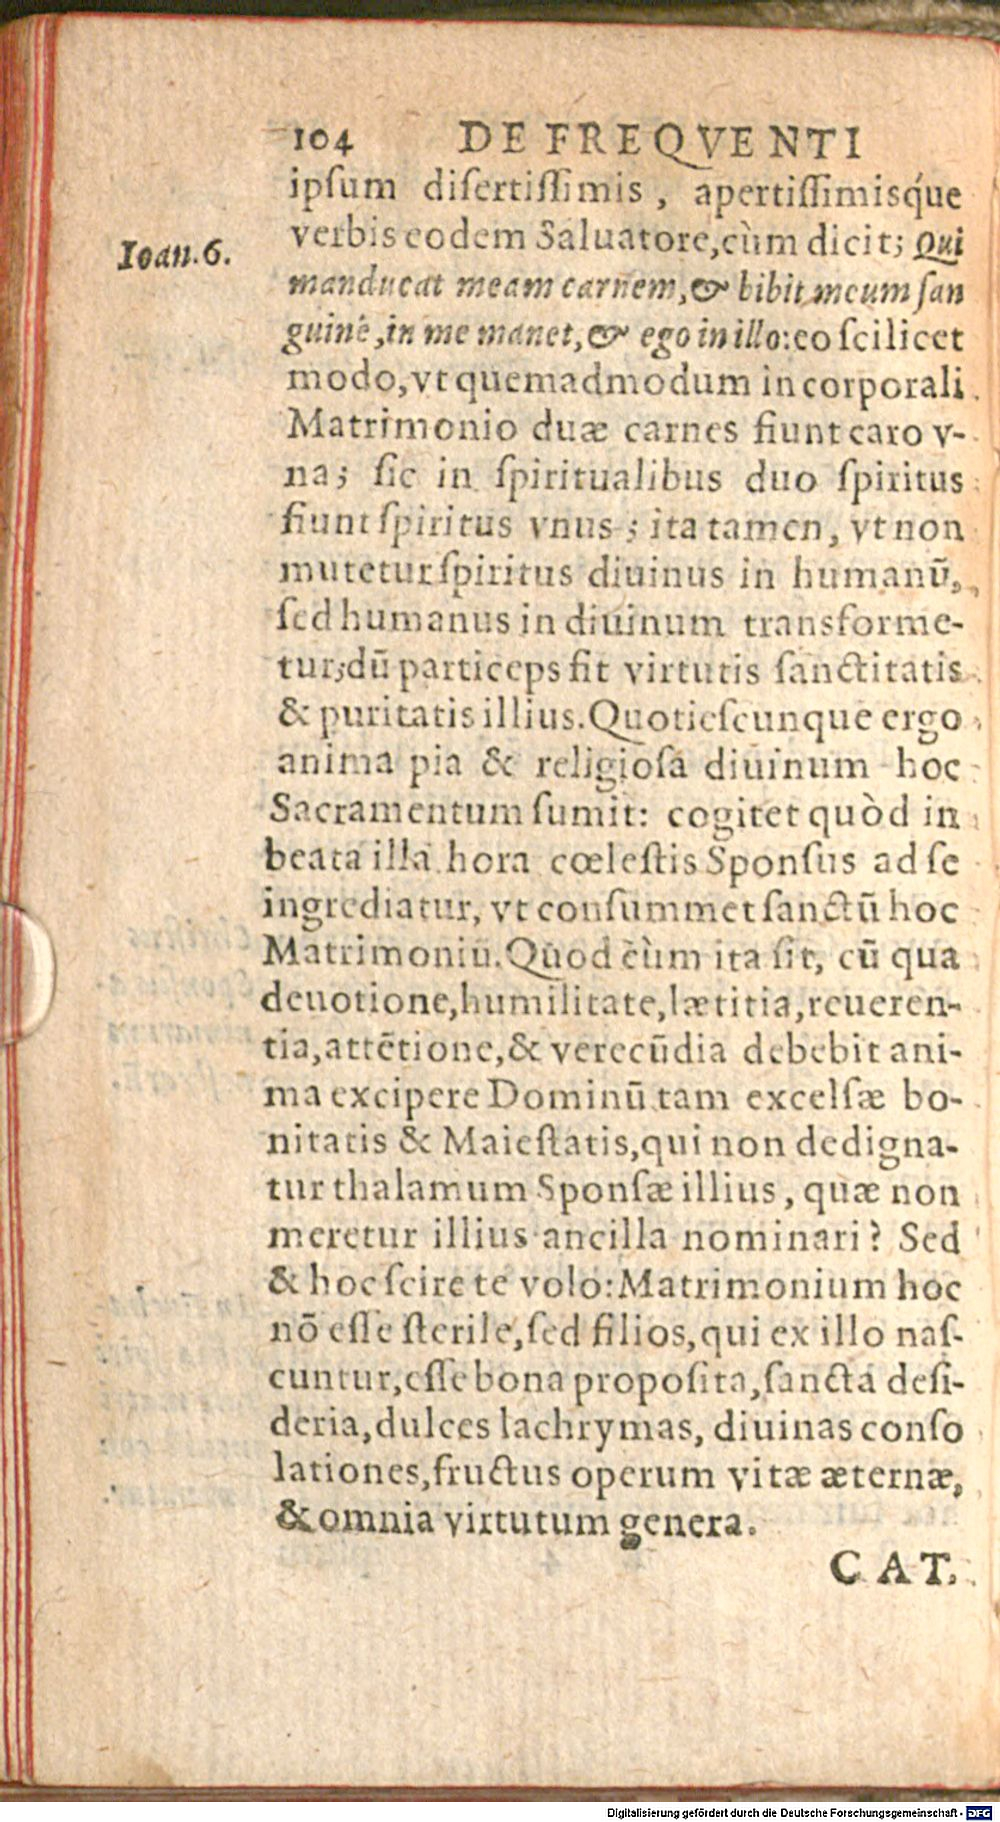 104 DE FREQVENTI
ipſum diſertiſſimis, apertiſſimisq́ue
verbis eodem Saluatore, cùm dicit; Qui
Ioan. 6.
manducat meam carnem, & bibit meum ſan
guinē, in me manet, & ego in illo: eo ſcilicet
modo, vt quemadmodum in corporali
Matrimonio duæ carnes fiunt caro v-
na; ſic in ſpiritualibus duo ſpiritus
fiunt ſpiritus vnus; ita tamen, vt non
mutetur ſpiritus diuinus in humanū,
ſed humanus in diuinum transforme-
tur; dū particeps fit virtutis ſanctitatis
& puritatis illius. Quotieſcunque ergo
anima pia & religioſa diuinum hoc
Sacramentum ſumit: cogitet quòd in
beata illa hora cœleſtis Sponſus ad ſe
ingrediatur, vt conſummet ſanctū hoc
Matrimoniū. Quod cùm ita ſit, cū qua
deuotione, humilitate, lætitia, reueren-
tia, attētione, & verecūdia debebit ani-
ma excipere Dominū tam excelſæ bo-
nitatis & Maieſtatis, qui non dedigna-
tur thalamum Sponſæ illius, quæ non
meretur illius ancilla nominari? Sed
& hoc ſcire te volo: Matrimonium hoc
nō eſſe ſterile, ſed filios, qui ex illo naſ-
cuntur, eſſe bona propoſita, ſancta deſi-
deria, dulces lachrymas, diuinas conſo
lationes, fructus operum vitæ æternæ,
& omnia virtutum genera.
CAT.
Digitalisierung gefördert durch die Deutsche Forschungsgemeinschaft - DFG